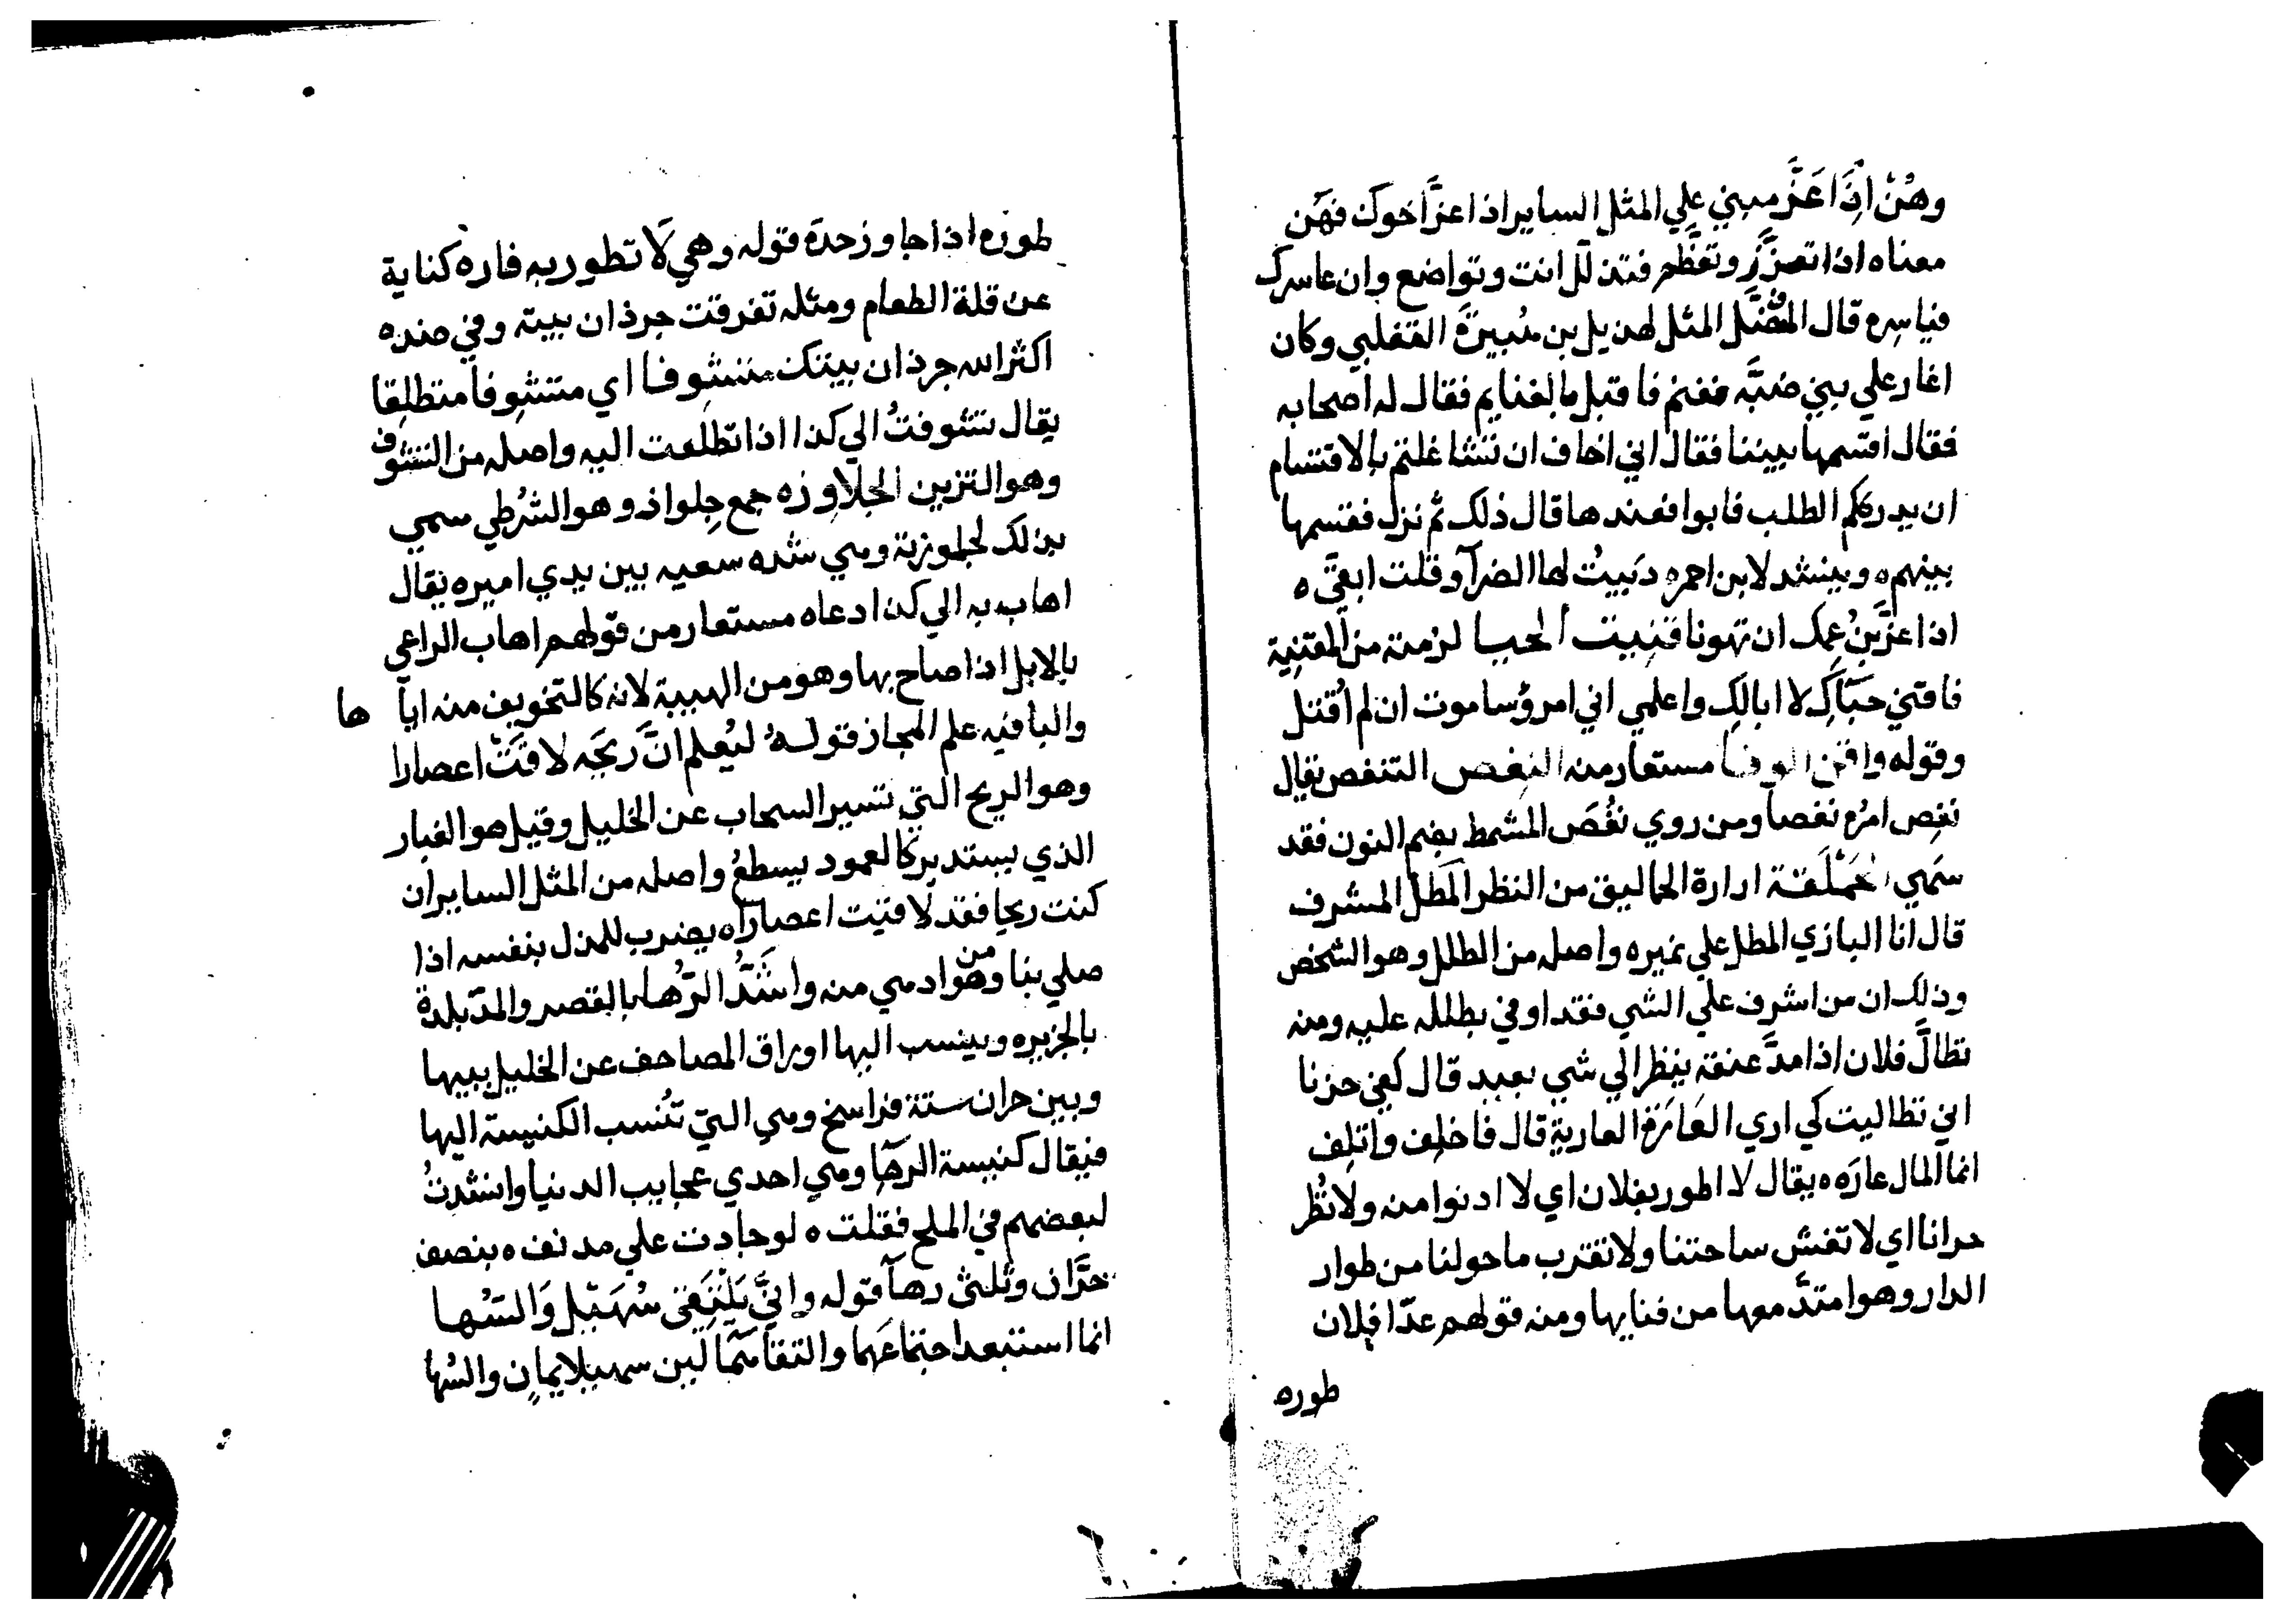 وهُنْ اِذَا عَزَّ مبني علي المثل الساير اذا عزّ اخوك فهُن
معناه اذا تعزَّز وتعظَّم فتذلّل انت وتواضع وان عاسرك
فياسره قال المفضَّل المثل لهذيل بن هُبيرَة التغلبي وكان
اغار علي بني ضبَّه فغنم فاقبل بالغنايم فقال له اصحابه
فقال اقتسمها بيننا فقال اني اخاف ان تتشاغلتم بالاقتسام
ان يدرككم الطلب فابوا فعندها قال ذلك ثم نزل فقسمها
بينهم ه وينشد لابن احمر ه دَبيتُ لها الضرآ وقلت ابقي ه
اذا عزَّ بنُ عمك ان تهونا قنيت الحيا لزمته من القنية
فاقني حيَّاكِ لا ابالكِ واعلمي اني امرؤ ساموت ان لم اُقتل
وقوله مستعار من النغص التنغص يقال
نغِص امرُه نغصا ومن روي نُغُصَ المشمط بضم النون فقد
سَهي الحَمْلَقة ادارة الحماليق من النظر المُطلّ المشرف
قال انا البازي المطل علي نميره واصله من الطلل وهو الشخص
وذلك ان من اشرف علي الشي فقد اوفي بطلله عليه ومنه
تطالَّ فلان اذا مدَّ عنقه ينظر الي شي بعيد قال كفي حزنا
اني تطاليت كي اري العَارَة العارية قال فاخلِف واتلِف
انما المال عارَه ه يقال لا اطور بفلان اي لا ادنوا منه ولا تُطُر
حرانا اي لا تغش ساحتنا ولا تقترب ما حولنا من طوار
الدار وهو امتدَّ معها من فنايها ومنه قولهم عدّا فلان
طوره
طوره اذا جاوز حدّه قوله وهي لا تطور به فاره كناية
عن قلة الطعام ومثله تفرقت جرذان بيته وفي ضده
اكثر الله جرذان بيتك متشوفا اي متشوفا متطلعا
يقال تشوفتُ الي كذا اذا تطلعت اليه واصله من التشوف
وهو التزين الجلاوزه جمع جِلواذ وهو الشُرطي سمي
بذلك لجلوزته وهي شده سعيه بين يدي اميره يقال
اهاب به الي كذا دعاه مستعار من قولهم اهاب الراعي
بالابل اذا صاح بها وهو من الهيبة لانه كالتخويف منه اياها
والبا فيه علم المجاز قولهُ ليُعلم انَّ ريحَه لاقَتْ اعصارا
وهو الريح التي تسير السحاب عن الخليل وقيل هو الغبار
الذي يستدير كالعمود يسطعُ واصله من المثل الساير ان
كنت ريحا فقد لاقيت اعصارا ه يضرب للمدل بنفسه اذا
صلي بنا وهو من ادهي منه واشَدُّ الرُّها بالقصر والمدّ بلدة
بالجزيره وينسب اليها اوراق المصاحف عن الخليل بيها
وبين حران ستة فراسخ وهي التي تُنسب الكنيسة اليها
فيقال كنيسة الرهَا وهي احدي عجايب الدنيا وانشدتُ
لبعضهم في الملح فقلت ه لو جادت علي مدنف ه بنصف
حرَّان وثلثي رهآ قوله وانَّي يَلْتَقي سُهَيْل وَالسُها
انما استبعد اجتماعَهما والتقآئهما لان سهيلا يمانٍ والسُها